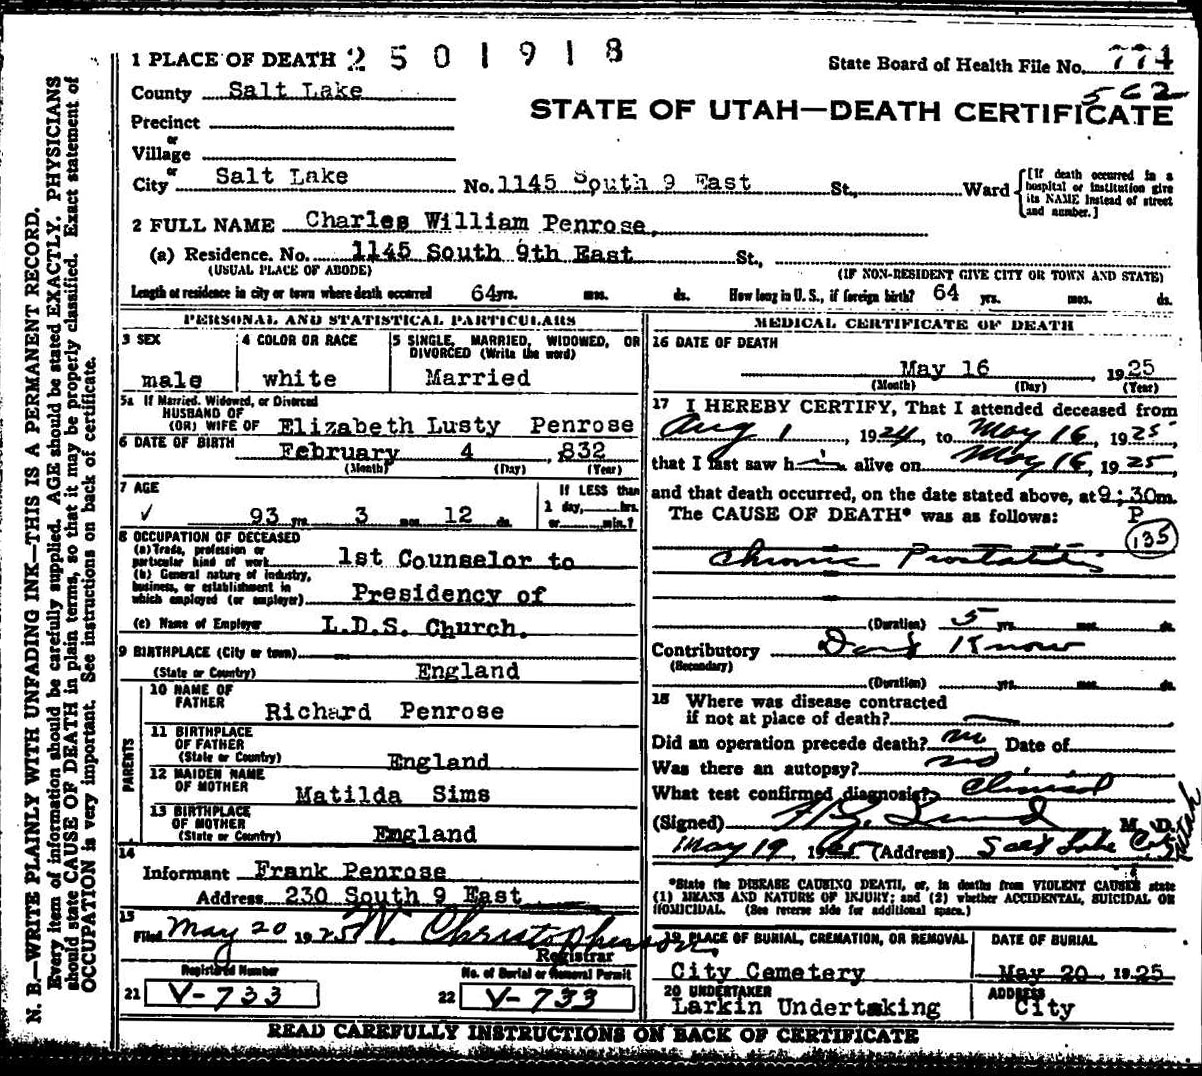 1 PLACE OF DEATH 2 5 0 1 9 1 8
State Board of Health File No. 774
562
County Salt Lake
STATE OF UTAH—DEATH CERTIFICATE
Precinct
or
Village
or
City Salt Lake No. 1145 South 9 East St., Ward
[If death occurred in a hospital or institution give its NAME instead of street and number.]
2 FULL NAME Charles William Penrose,
(a) Residence. No. 1145 South 9th East St.,
(USUAL PLACE OF ABODE) (IF NON-RESIDENT GIVE CITY OR TOWN AND STATE)
Length of residence in city or town where death occurred 64 yrs. mos. ds. How long in U. S., if foreign birth? 64 yrs. mos. ds.
PERSONAL AND STATISTICAL PARTICULARS
3 SEX
male
4 COLOR OR RACE
white
5 SINGLE, MARRIED, WIDOWED, OR
DIVORCED (Write the word)
Married
5a If Married, Widowed, or Divorced
HUSBAND OF
(OR) WIFE OF Elizabeth Lusty Penrose
6 DATE OF BIRTH February 4, 832
(Month) (Day) (Year)
7 AGE
√ 93 yrs. 3 mos. 12 ds.
If LESS than
1 day, hrs.
or min.?
8 OCCUPATION OF DECEASED
(a) Trade, profession or
particular kind of work 1st Counselor to
(b) General nature of industry,
business, or establishment in
which employed (or employer) Presidency of
(c) Name of Employer L.D.S. Church.
9 BIRTHPLACE (City or town)
(State or Country) England
PARENTS
10 NAME OF
FATHER Richard Penrose
11 BIRTHPLACE
OF FATHER
(State or Country) England
12 MAIDEN NAME
OF MOTHER Matilda Sims
13 BIRTHPLACE
OF MOTHER
(State or Country) England
14
Informant Frank Penrose
Address 230 South 9 East
15
Filed May 20 1925 W. Christopherson
Registrar
Registered Number
21 V-733
No. of Burial or Removal Permit
22 V-733
MEDICAL CERTIFICATE OF DEATH
16 DATE OF DEATH
May 16 1925
(Month) (Day) (Year)
17 I HEREBY CERTIFY, That I attended deceased from
Aug 1, 1924, to May 16, 1925,
that I last saw him alive on May 16, 1925,
and that death occurred, on the date stated above, at 9:30 m.
The CAUSE OF DEATH* was as follows: P
135
Chronic Prostatitis
(Duration) 5 yrs. mos. ds.
Contributory Dont Know
(Secondary)
(Duration) yrs. mos. ds.
18 Where was disease contracted
if not at place of death?
Did an operation precede death? no Date of
Was there an autopsy? no
What test confirmed diagnosis? Clinical
(Signed) M. D.
May 19, 1925 (Address) Salt Lake City Utah
*State the DISEASE CAUSING DEATH, or, in deaths from VIOLENT CAUSES state
(1) MEANS AND NATURE OF INJURY; and (2) whether ACCIDENTAL, SUICIDAL OR
HOMICIDAL. (See reverse side for additional space.)
19 PLACE OF BURIAL, CREMATION, OR REMOVAL
City Cemetery
DATE OF BURIAL
May 20, 1925
20 UNDERTAKER
Larkin Undertaking
ADDRESS
City
READ CAREFULLY INSTRUCTIONS ON BACK OF CERTIFICATE
N. B.—WRITE PLAINLY WITH UNFADING INK—THIS IS A PERMANENT RECORD.
Every item of information should be carefully supplied. AGE should be stated EXACTLY. PHYSICIANS
should state CAUSE OF DEATH in plain terms, so that it may be properly classified. Exact statement of
OCCUPATION is very important. See instructions on back of certificate.